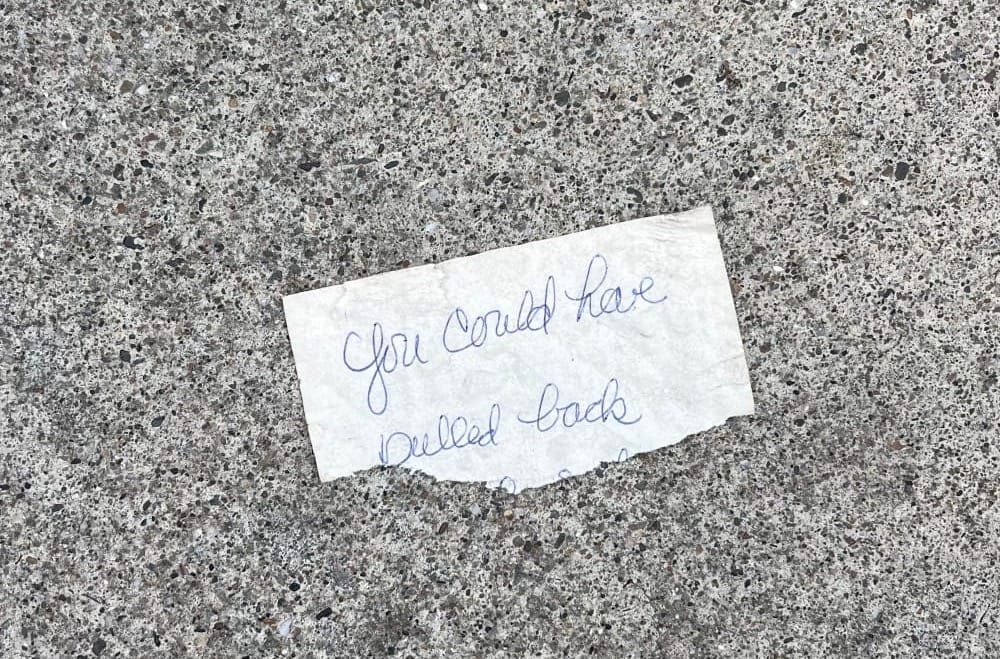 You could have
pulled back